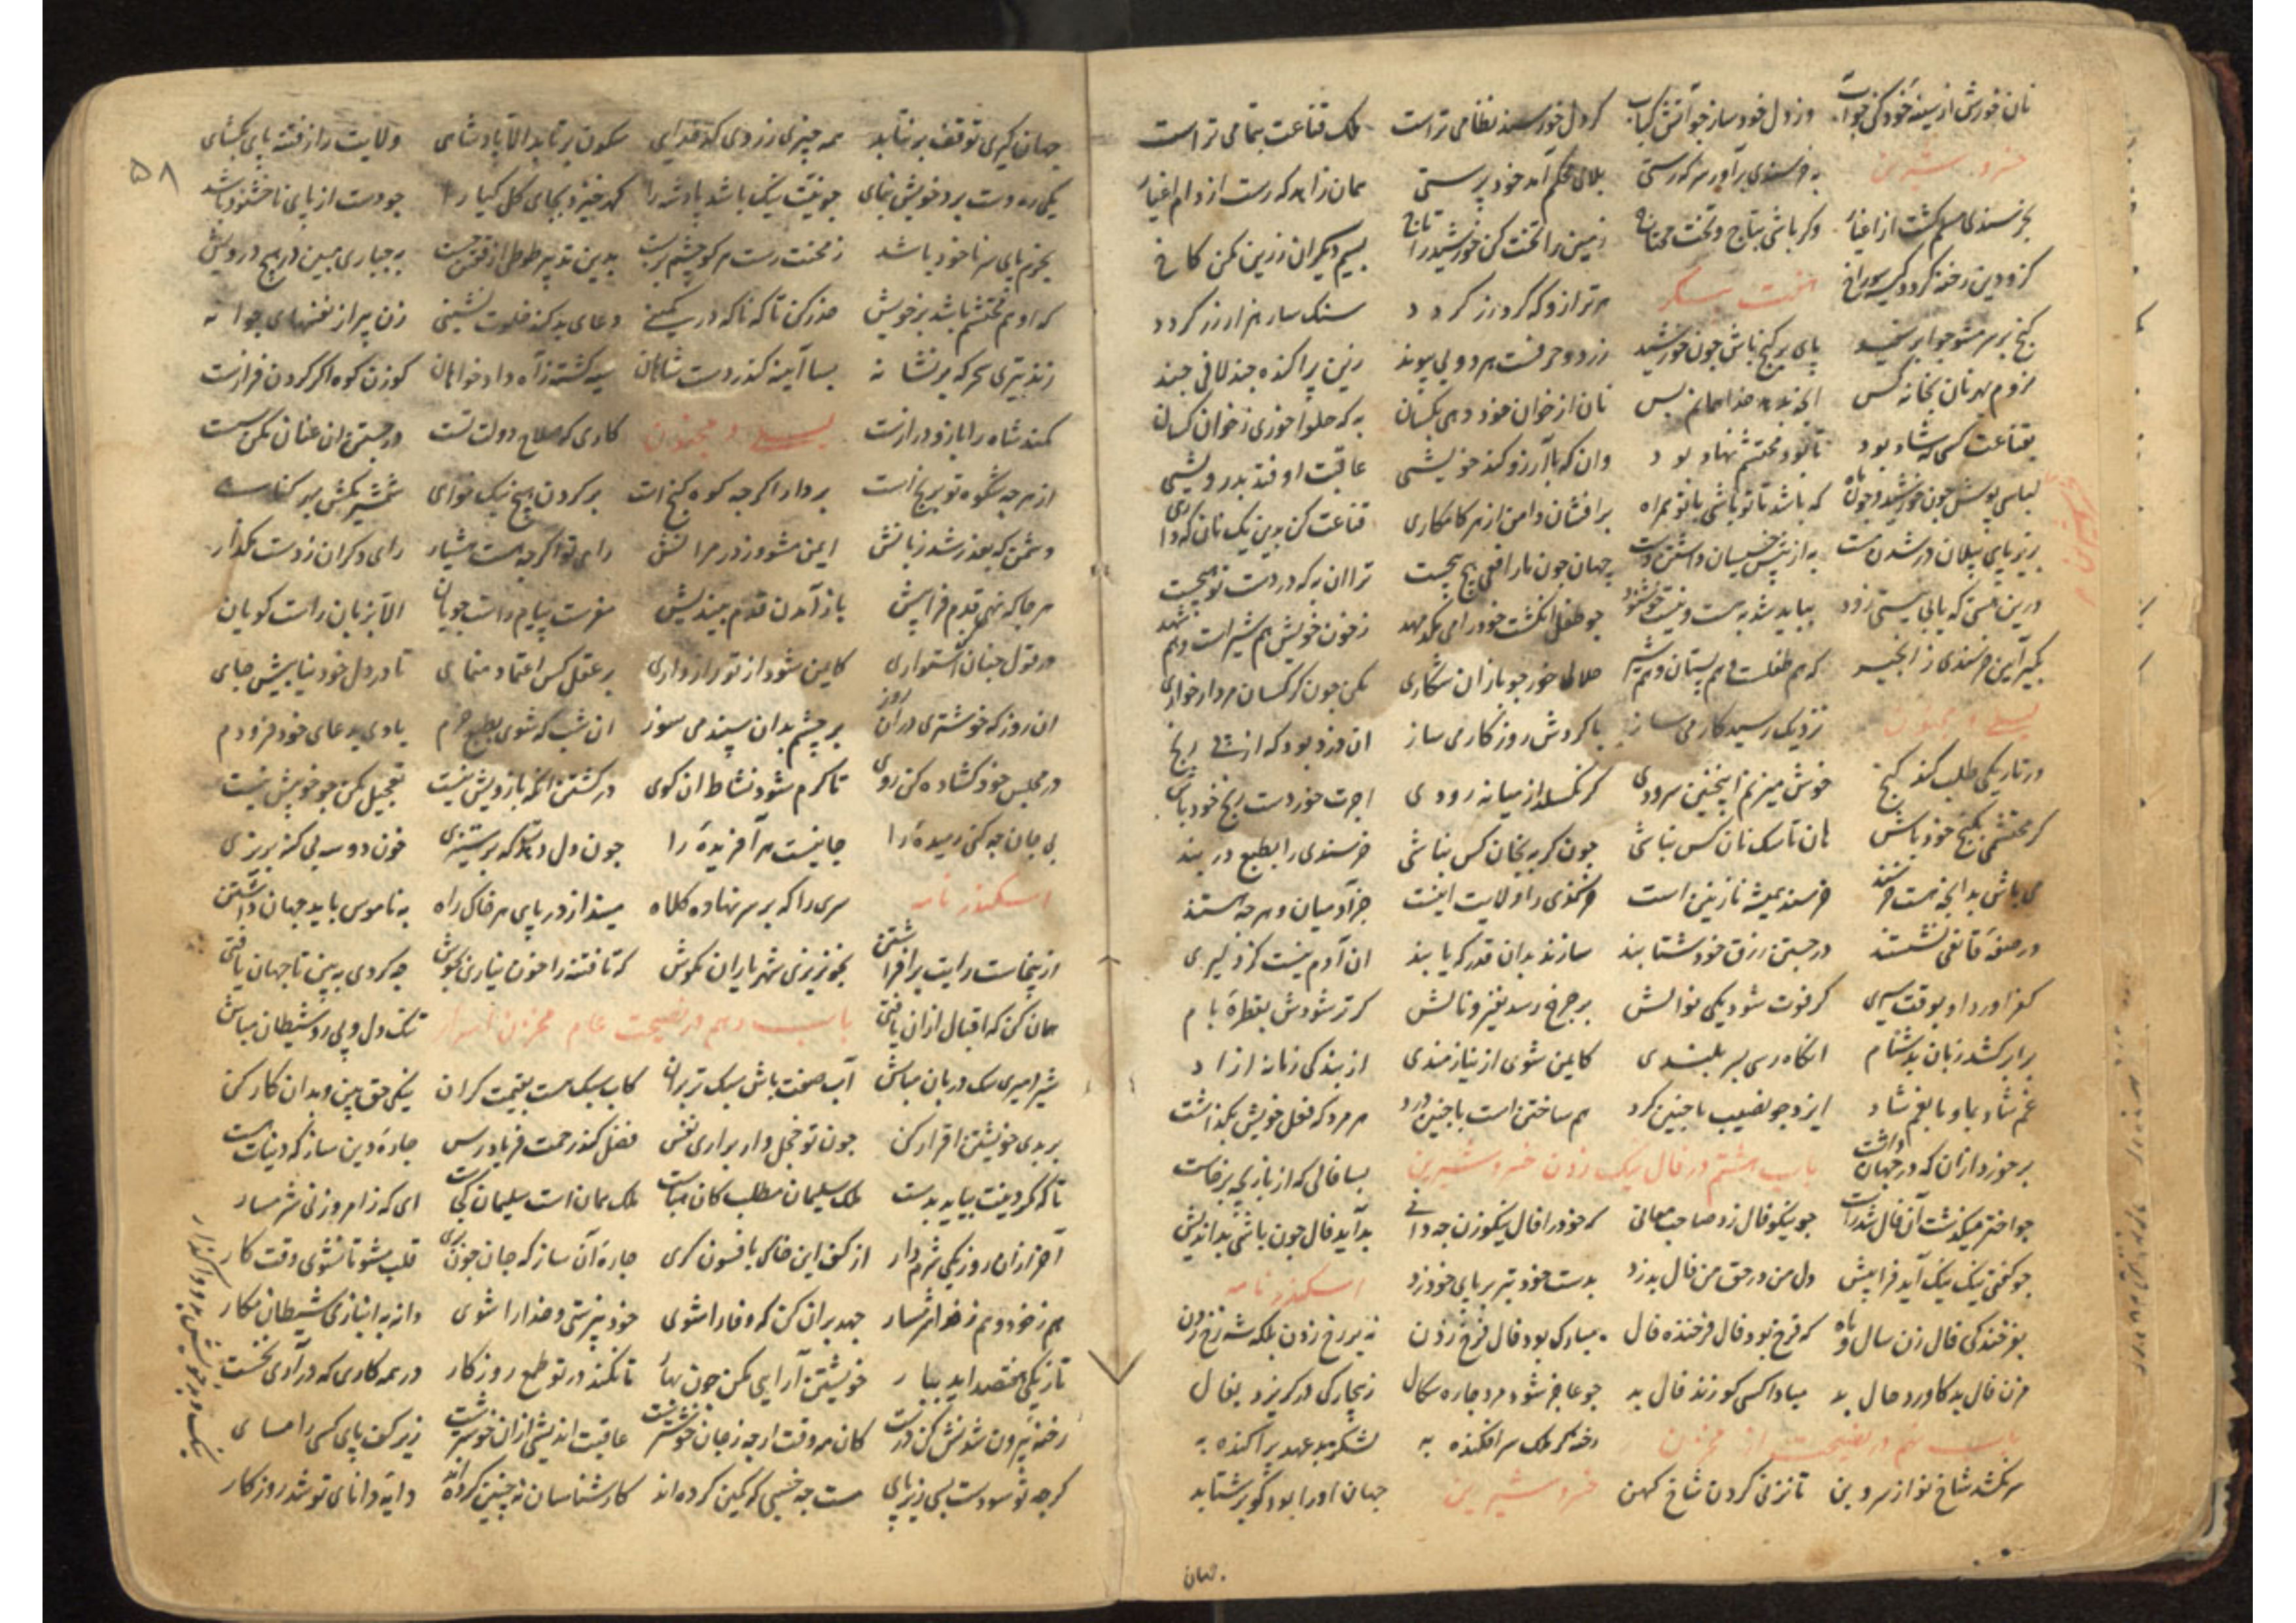 نان خورش از سینهٔ خود کن چو آب وز دل خود ساز چو آتش کباب گر دل خورسند نظامی تراست ملک قناعت بتمامی تراست
خسرو شیرین به خرسندی برآور سر که رستی بلای محکم آمد خود پرستی همان زاهد که رست از دام اغیار
بخرسندی مسلم گشت از اغیار وگر باشی بتاج و تخت محتاج زمین را تخت کن خورشید را تاج بسیم دیگران زرین مکن کاخ
کزو دین رخنه گردد کیسه سوراخ هفت پیکر هر ترازو که گرد زر گردد سنگسار هزار زر گردد
گنج بر سر مشو چو ابر سفید پای بر گنج باش چون خورشید زر دو حرفست هر دو بی پیوند زین پراکنده چند لافی چند
نان از خوان خود دهی بکسان به که حلوا خوری ز خوان کسان
بقناعت کسی که شاد بود تا بود محتشم نهاد بود وان که با آرزو کند خویشی عاقبت اوفتد بدرویشی
لباسی پوش چون خورشید و چون ماه که باشد تا تو باشی با تو همراه برافشان دامن از هر کامکاری قناعت کن بدین یک نان که داری
زیر پای پیلان در شدن پست به از پیش خسیسان داشتن دست جهان چون مار افعی پیچ پیچست ترا آن به که در دست تو هیچست
درین هستی که یابی نیستی زود بباید شد به هست و نیست خوشنود چو طفل انگشت خود را می مکد مهد ز خون خویش هم شیر است و هم شهد
بگیر آیین خرسندی ز انجیر که هم طفلست و هم پستان و هم شیر حلالی خور چو بازان شکاری مکن چون کرکسان مردار خواری
لیلی و مجنون نزدیک رسید کار می ساز با گردش روزگار می ساز آن دزد بود که از پی رنج
در تاریکی طلب کند گنج خوش میزنم اینچنین سرودی گر نگسلد از میانه رودی اجرت خور دست رنج خود باش
گر محتشمی بگنج خود باش هان تا سگ نان کس نباشی چون گربه بخوان کس نباشی خرسندی را بطبع در بند
می باش بدانچه هست خرسند خرسند همیشه نازنین است خرسندی را ولایت اینست جز آدمیان هر چه هستند
در صفهٔ قانعی نشستند در جستن رزق خود شتابند سازند بدان قدر که یابند آن آدمیست کز دلیری
کفر آورد او بوقت سیری گر فوت شود یکی نوالش بر چرخ رسد نفیر و نالش گر تر شودش بقطره بام
برابر کشد زبان بدشنام آنگاه رسی بسر بلندی کایمن شوی از نیازمندی از بندگی زمانه آزاد
غم شاد بما و ما بغم شاد ایزد چو نصیب ما چنین کرد هم ساختن است با چنین درد هر مرد که فعل خویش بگذاشت
برخور از آن که در جهان داشت باب هشتم در فال نیک زدن خسرو شیرین بسا فالی که از بازیچه برخاست
چو اختر میگذشت آن فال شد راست چو نیکو فال زد صاحب معانی که خود را فال نیکو زن چو دانی بد آید فال چون باشی بداندیش
چو گفتی نیک نیک آید فرا پیش دل من در حق من فال بد زد بدست خود تبر بر پای خود زد اسکندر نامه
بفرخندگی فال زن سال و ماه که فرخ بود فال فرخنده فال مبارک بود فال فرخ زدن نه بر رخ زدن بلکه شه رخ زدن
مزن فال بد کاورد حال بد مبادا کسی کو زند فال بد چو عاجز شود مرد چاره سگال ز بیچارگی در گریزد بفال
باب نهم در نصیحت از مخزن رخنه گر ملک سر افکنده به لشکر بد عهد پراکنده به
سر نکشد شاخ نو از سرو بن تا نزنی گردن شاخ کهن خسرو شیرین جهان او را بود کو برشتابد
جهان
۵۸
جهان گیری توقف بر نتابد همه چیزی ز روی کدخدایی سکون بر تابد الا پادشاهی ولایت را ز فتنه پای بگشای
یکی ره دست برد خویش بنمای چو نیت نیک باشد پادشه را گهر خیزد بجای گل گیا را چو دست از پای ناخشنود باشد
بجرم پای سر ماخوذ باشد ز محنت رست هر کو چشم بربست بدین تدبیر طوطی از قفس جست به جباری مبین در هیچ درویش
که او هم محتشم باشد بر خویش حذر کن تا که ناگه در کمینی دعای بد کند خلوت نشینی زن پیر از نفسهای جوانه
زند تیری سحرگه بر نشانه بسا آیینه کندر دست شاهان سیه گشته ز آه داد خواهان گوزن کوه اگر گردن فرازست
کمند شاه را بازو درازست لیلی و مجنون کاری که صلاح دولت تست در جستن آن عنان مکن سست
از هر چه شکوه تو برنج است بردار اگر چه کوه گنج است بر گردن هیچ نیک خواهی شمشیر مکش بهر گناهی
دشمن که بعذر شد زبانش ایمن مشو و ز در مرانش رای تو اگر چه هست هشیار رای دگران ز دست مگذار
هر جا که نهی قدم فراپیش باز آمدن قدم بیندیش مفرست پیام داست جویان الا بزبان راست گویان
در قول چنان کن استواری کایمن شود از تو رازداری بر عقل کس اعتماد منمای تا در دل خود نیابیش جای
آن روز که خوشتری در آن روز بر چشم بدان سپند می سوز آن شب که شوی بطبع خرم یادی بدعای خود فرو دم
در مجلس خود گشاده کن روی تا گرم شود نشاط آن کوی در کشتن آنکه با زبونیست تعجیل مکن چو خویش نیست
بی جان چه کنی رمیده را جانیست هر آفریده را چون دل دهدت که بر ستیزی خون دو سه بی گنه بریزی
اسکندر نامه سری را که بر سر نهاده کلاه مینداز در پای هر خاک راه به ناموس باید جهان داشتن
از ینجاست رایت برافراشتن بخونریزی شهریاران مکوش که تا فتنه را خون نیاری بجوش چه کردی به بین تا جهان یافتی
همان کن که اقبال از آن یافتی باب دهم در نصیحت عام مخزن اسرار تنگ دل و پی رو شیطان مباش
شیر امیری سگ دربان مباش آب صفت باش سبک تر بران کاب سبک هست بقیمت گران نیکی حق بین و بدان کار کن
بر بدی خویشتن اقرار کن چون تو خجل وار برآری نفس فضل کند رحمت فریاد رس چارهٔ دین ساز که دنیات هست
تا که مگر دینت بیاید بدست ملک سلیمان مطلب کان هباست ملک همان است سلیمان کجاست ای که ز امروز نی شرمسار
آخر از آن روز یکی شرم دار از کف این خاک بافسون گری چارهٔ آن ساز که جان چون بری قلب مشو تا نشوی وقت کار
هم ز خود و هم ز خدا شرمسار جهد بر آن کن که وفا را شوی خود نپرستی و خدا را شوی دانه به انبازی شیطان مکار
تا ز یکی هفتصد آید ببار خویشتن آرایی مکن چون بهار تا نکند در تو طمع روزگار در همه کاری که در آری نخست
رخنهٔ بیرون شدنش کن درست کان همه وقت ار چه ز جان خوشترست عاقبت اندیشی از آن خوشترست زیر کف پای کسی را مسای
گر چه تو سودست بسی زیر پای کارشناسان نه چنین کرده اند دایهٔ دانای تو شد روزگار